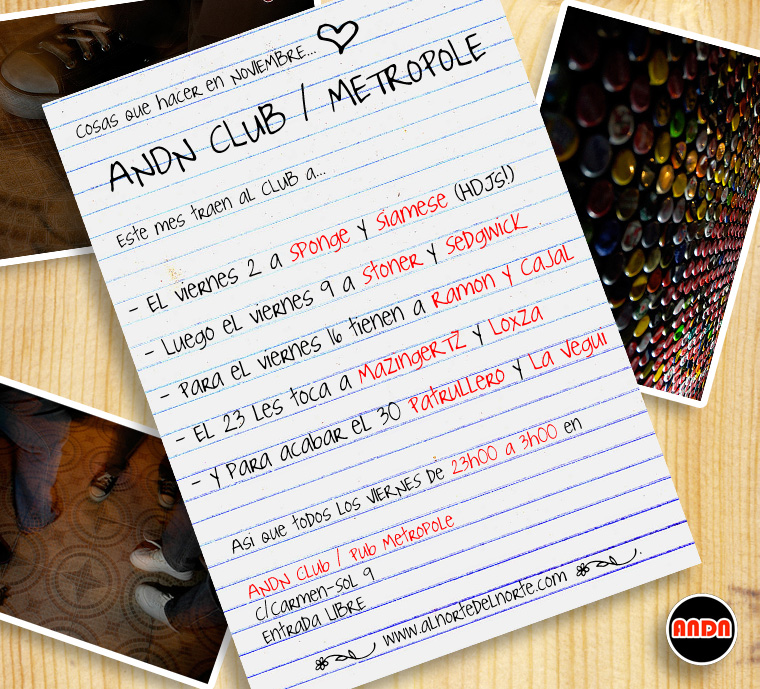 Cosas que hacer en NOVIEMBRE...
ANDN CLUB / METROPOLE
Este mes traen al CLUB a...
- El viernes 2 a Sponge y Siamese (HDJs!)
- Luego el viernes 9 a Stoner y Sedgwick
- Para el viernes 16 tienen a Ramon y Cajal
- El 23 les toca a MazingerTZ y Loxza
- Y para acabar el 30 Patrullero y La Vegui
Asi que todos los VIERNES de 23h00 a 3h00 en
ANDN Club / Pub Metropole
c/Carmen-sol 9
Entrada LIBRE
www.alnortedelnorte.com
ANDN